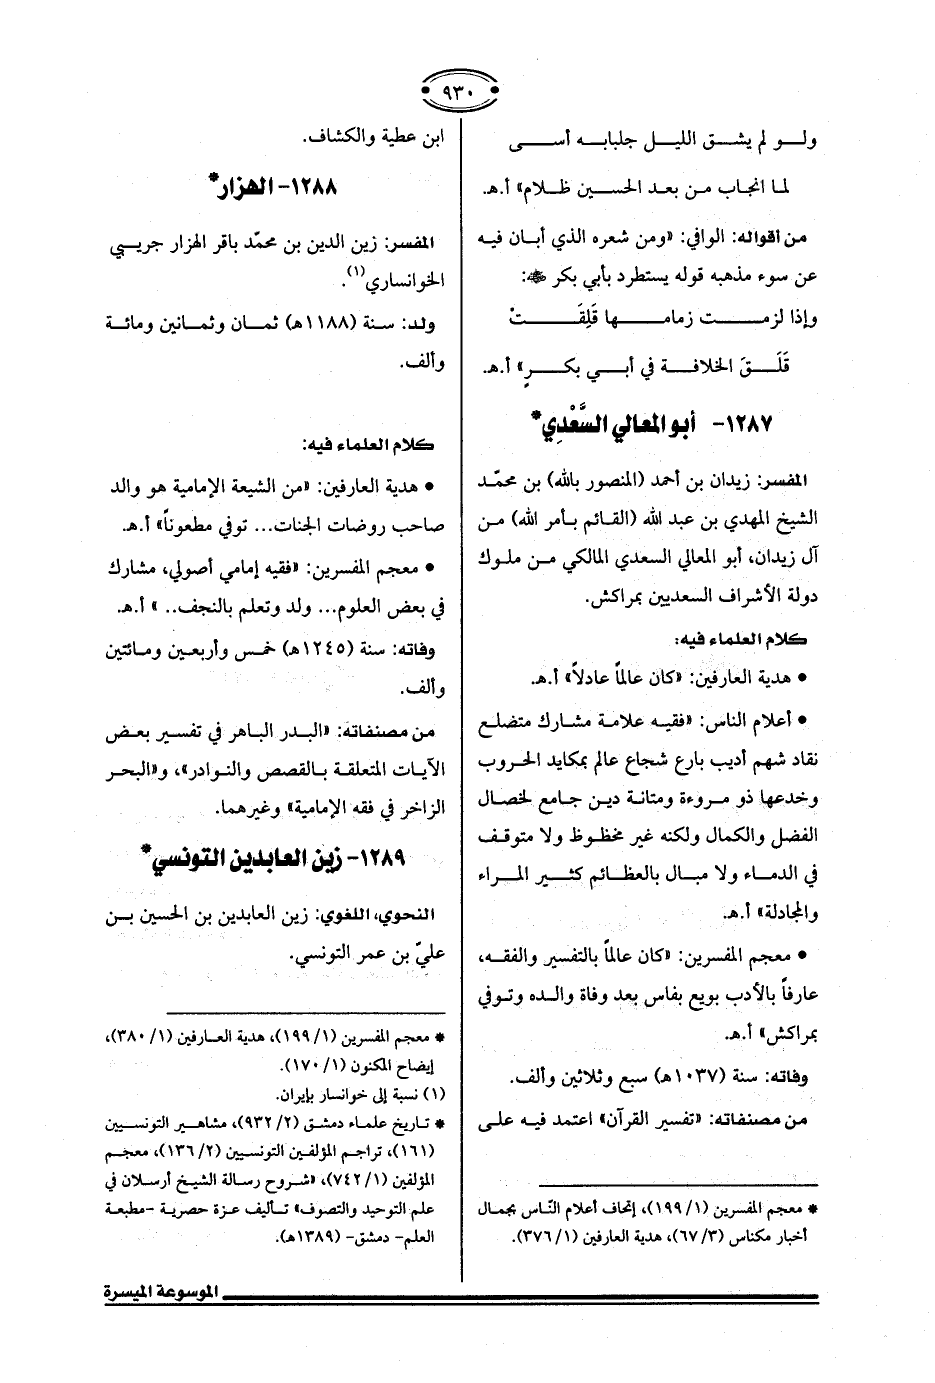 ٩٣٠
ولو لم يشق الليل جلبابه أسى
لما انجاب من بعد الحسين ظلام» أ.هـ.
من أقواله: الوافي: «ومن شعره الذي أبان فيه
عن سوء مذهبه قوله يستطرد بأبي بكر ﷺ:
وإذا لزمت زمامها قَلِقَتْ
قَلَقَ الخلافة في أبي بكرٍ» أ.هـ.
١٢٨٧- أبو المعالي السَّعْدِي*
المفسر: زيدان بن أحمد (المنصور بالله) بن محمّد
الشيخ المهدي بن عبد الله (القائم بأمر الله) من
آل زيدان، أبو المعالي السعدي المالكي من ملوك
دولة الأشراف السعديين بمراكش.
كلام العلماء فيه:
• هدية العارفين: «كان عالماً عادلاً» أ.هـ.
• أعلام الناس: «فقيه علامة مشارك متضلع
نقاد شهم أديب بارع شجاع عالم بمكايد الحروب
وخدعها ذو مروءة ومتانة دين جامع لخصال
الفضل والكمال ولكنه غير محظوظ ولا متوقف
في الدماء ولا مبال بالعظائم كثير المراء
والمجادلة» أ.هـ.
• معجم المفسرين: «كان عالماً بالتفسير والفقه،
عارفاً بالأدب بويع بفاس بعد وفاة والده وتوفي
بمراكش» أ.هـ.
وفاته: سنة (١٠٣٧هـ) سبع وثلاثين وألف.
من مصنفاته: «تفسير القرآن» اعتمد فيه على
* معجم المفسرين (١/ ١٩٩)، إتحاف أعلام النّاس بجمال
أخبار مكناس (٣/ ٦٧)، هدية العارفين (١/ ٣٧٦).
ابن عطية والكشاف.
١٢٨٨- الهزار*
المفسر: زين الدين بن محمّد باقر الهزار جريبي
الخوانساري(١).
ولد: سنة (١١٨٨هـ) ثمان وثمانين ومائة
وألف.
كلام العلماء فيه:
• هدية العارفين: «من الشيعة الإمامية هو والد
صاحب روضات الجنات... توفي مطعوناً» أ.هـ.
• معجم المفسرين: «فقيه إمامي أصولي، مشارك
في بعض العلوم... ولد وتعلم بالنجف.. » أ.هـ.
وفاته: سنة (١٢٤٥هـ) خمس وأربعين ومائتين
وألف.
من مصنفاته: «البدر الباهر في تفسير بعض
الآيات المتعلقة بالقصص والنوادر»، و«البحر
الزاخر في فقه الإمامية» وغيرهما.
١٢٨٩- زين العابدين التونسي*
النحوي، اللغوي: زين العابدين بن الحسين بن
عليّ بن عمر التونسي.
* معجم المفسرين (١/ ١٩٩)، هدية العارفين (١/ ٣٨٠)،
إيضاح المكنون (١/ ١٧٠).
(١) نسبة إلى خوانسار بإيران.
* تاريخ علماء دمشق (٢/ ٩٣٢)، مشاهير التونسيين
(١٦١)، تراجم المؤلفين التونسيين (٢/ ١٣٦)، معجم
المؤلفين (١/ ٧٤٢)، «شروح رسالة الشيخ أرسلان في
علم التوحيد والتصوف» تأليف عزة حصرية -مطبعة
العلم- دمشق- (١٣٨٩هـ).
الموسوعة الميسرة